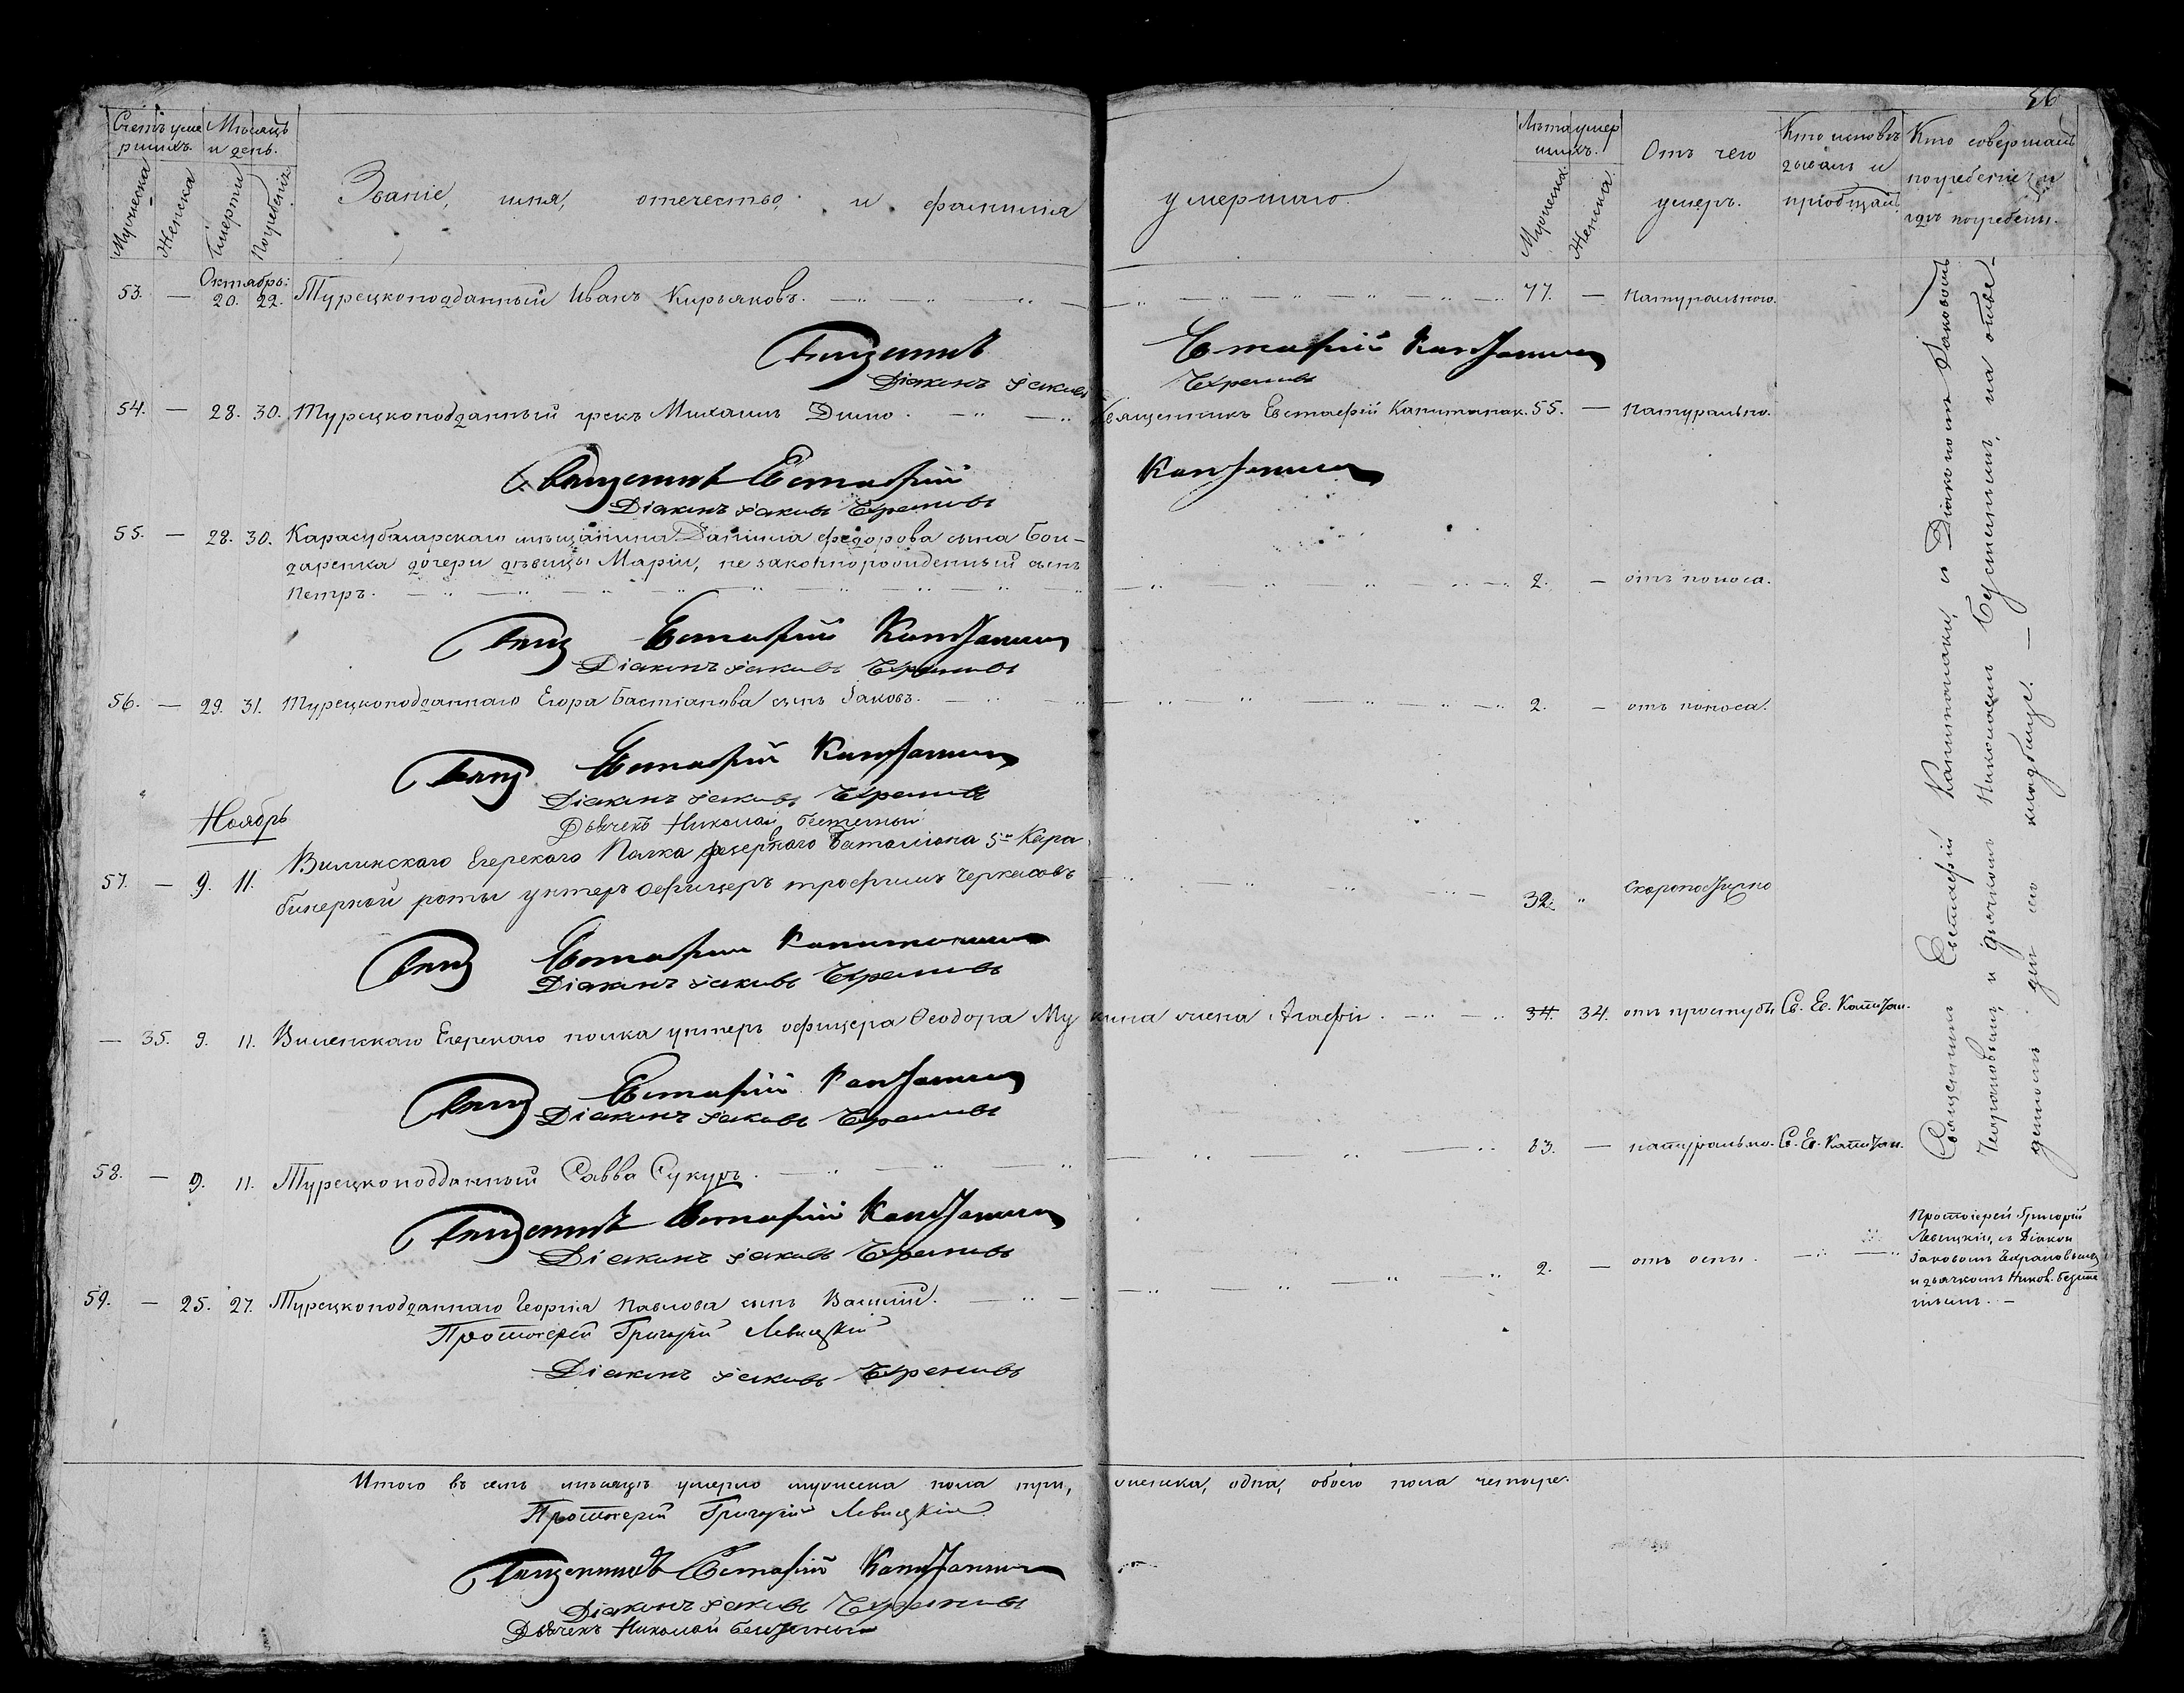 56
Счетъ уме Мѣсяцъ
ршихъ. и день.
Мужеска Женска Смерти Погребенія
Званіе, имя, отечество, и фамилия умершаго.
Лѣта умер
шихъ.
Мужеска. Женска.
Отъ чего
умеръ.
Кто исповѣ
дывалъ и
пріобщалъ
Кто совершалъ
погребеніе и
гдѣ погребены.
Октябрь:
53. — 20. 22. Турецкоподданный Иванъ Кирьяковъ. 77. — Натурально.
Священникъ Евстафій
Діаконъ Іаковъ
54. — 28. 30. Турецкоподданный грекъ Михаилъ Димо. Священникъ Евстафій Капитанаки. 55. — Натурально.
Священникъ Евстафій
Діаконъ Іаковъ
55. — 28. 30. Карасубазарскаго мѣщанина Даніила Федорова сына Бон-
даренка дочери дѣвицы Маріи, незаконнорожденный сынъ
Петръ. 2. — отъ поноса.
Свящ Евстафій
Діаконъ Іаковъ
56. — 29. 31. Турецкоподданнаго Егора Бастіанова сынъ Іаковъ. 2. — отъ поноса.
Свящ Евстафій
Діаконъ Іаковъ
Дьячекъ Николай
Ноябрь
57. — 9. 11. Виленскаго Егерскаго Полка резервнаго баталіона 5й Кара
бинерной роты унтеръ офицеръ трофимъ Черкасовъ 32. „ Скоропостижно
Свящ Евстафій
Діаконъ Іаковъ
— 35. 9. 11. Виленскаго Егерскаго полка унтеръ офицера Феодора Мукина жена Агафія. 34. 34. отъ простуды Св. Ев. Капитан.
Свящ Евстафій
Діаконъ Іаковъ
58. — 9. 11. Турецкоподданный Савва Сукуръ. 83. — натурально. С. Ев. Капитан.
Священникъ Евстафій
Діаконъ Іаковъ
59. — 25. 27. Турецкоподданнаго Георгія Павлова сынъ Василій. 2. — отъ оспы.
Протоіерей Григорій Левицкій
Діаконъ Іаковъ
Священникъ Евстафій Капитанаки, съ Діакономъ Іаковомъ
и дьячкомъ Николаемъ на обще-
кладбище. —
Протоіерей Григорій
Левицкій, съ Діакон
Іаковомъ
и дьячкомъ Никол.
Итого въ семъ мѣсяцѣ умерло мужеска пола три, женска, одна, обоего пола четыре.
Протоіерей Григорій Левицкій
Священникъ Евстафій
Діаконъ Іаковъ
Дьячекъ Николай